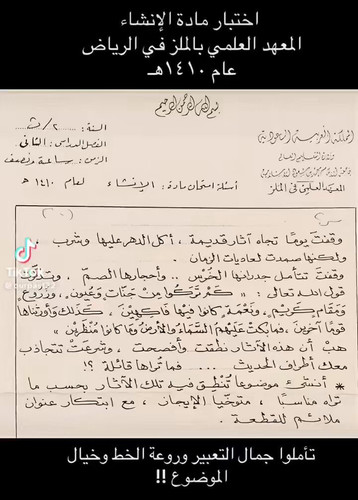 اختبار مادة الإنشاء
المعهد العلمي بالملز في الرياض
عام ١٤١٠هـ
بسم الله الرحمن الرحيم
المملكة العربية السعودية
وزارة التعليم العالي
المعهد العلمي في الملز
السنة: ٢/ث
الفصل الدراسي: الثاني
الزمن: ساعة ونصف
أسئلة امتحان مادة: الإنشاء لعام ١٤١٠ هـ
وقفتَ يومًا تجاه آثار قديمة، أكل الدهر عليها وشرب،
ولكنها صمدت لعاديات الزمان.
وقفتَ تتأمل جدرانها الخُرْس .. وأحجارها الصمّ،
قول الله تعالى: « كَمْ تَرَكُوا مِنْ جَنَّاتٍ وَعُيُونٍ، وَزُرُوعٍ
وَمَقَامٍ كَرِيمٍ، وَنَعْمَةٍ كَانُوا فِيهَا فَاكِهِينَ، كَذَلِكَ وَأَوْرَثْنَاهَا
قَوْمًا آخَرِينَ، فَمَا بَكَتْ عَلَيْهِمُ السَّمَاءُ وَالأَرْضُ وَمَا كَانُوا مُنْظَرِينَ »
هبْ أن هذه الآثار نطقت وأفصحت، وشرعتْ تتجاذب
معك أطراف الحديث .... فما تُراها قائلة ؟!
* أنشئ موضوعًا تُنطِق فيه تلك الآثار بحسب ما
تراه مناسبًا، متوخّيًا الإيجاز، مع ابتكار عنوان
ملائم للقطعة.
TikTok
تأملوا جمال التعبير وروعة الخط وخيال
الموضوع !!